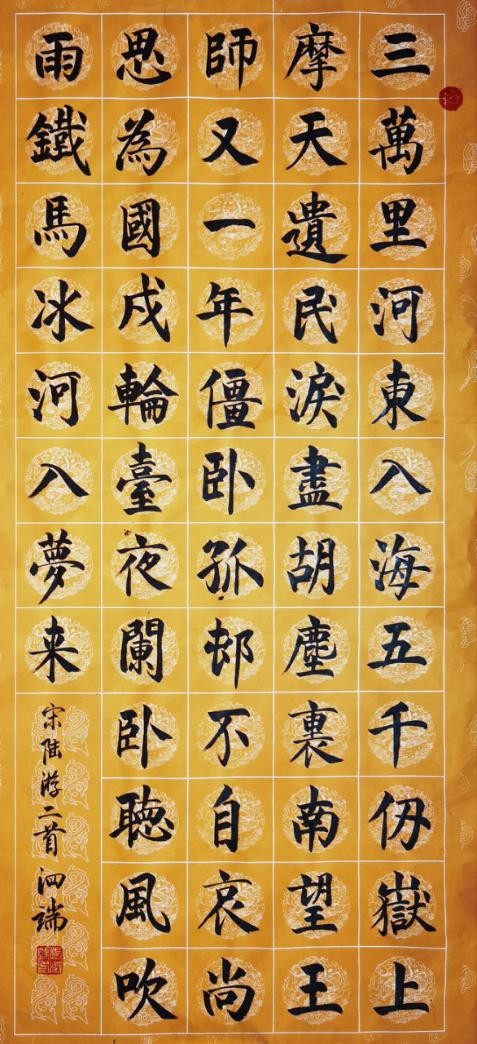 三萬里河東入海五千仞嶽上
摩天遺民淚盡胡塵裏南望王
師又一年僵卧孤邨不自哀尚
思為國戍輪臺夜闌卧聴風吹
雨鐵馬冰河入夢来
宋陆游二首 泗瑞